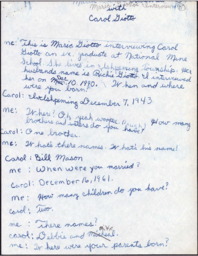 with
Carol Giotto
me: This is Marco Giotto interviewing Carol
Giotto an LPN graduate at National Mine
School. She lives in Ishpeming Township. Her
husbands name is Rocki Giotto. I interviewed
her on 10, 1990. When and where
were you born?
Carol: Ishpeming December 7, 1943.
me: When? Oh yeah How many
brothers and sisters do you have?
Carol: One brother.
me: What's his name?
Carol: Bill Mason
me: When were you married?
Carol: December 16, 1961.
me: How many children do you have?
Carol: Two.
me: There names?
Carol: Debbie and
me: Where were your parents born?